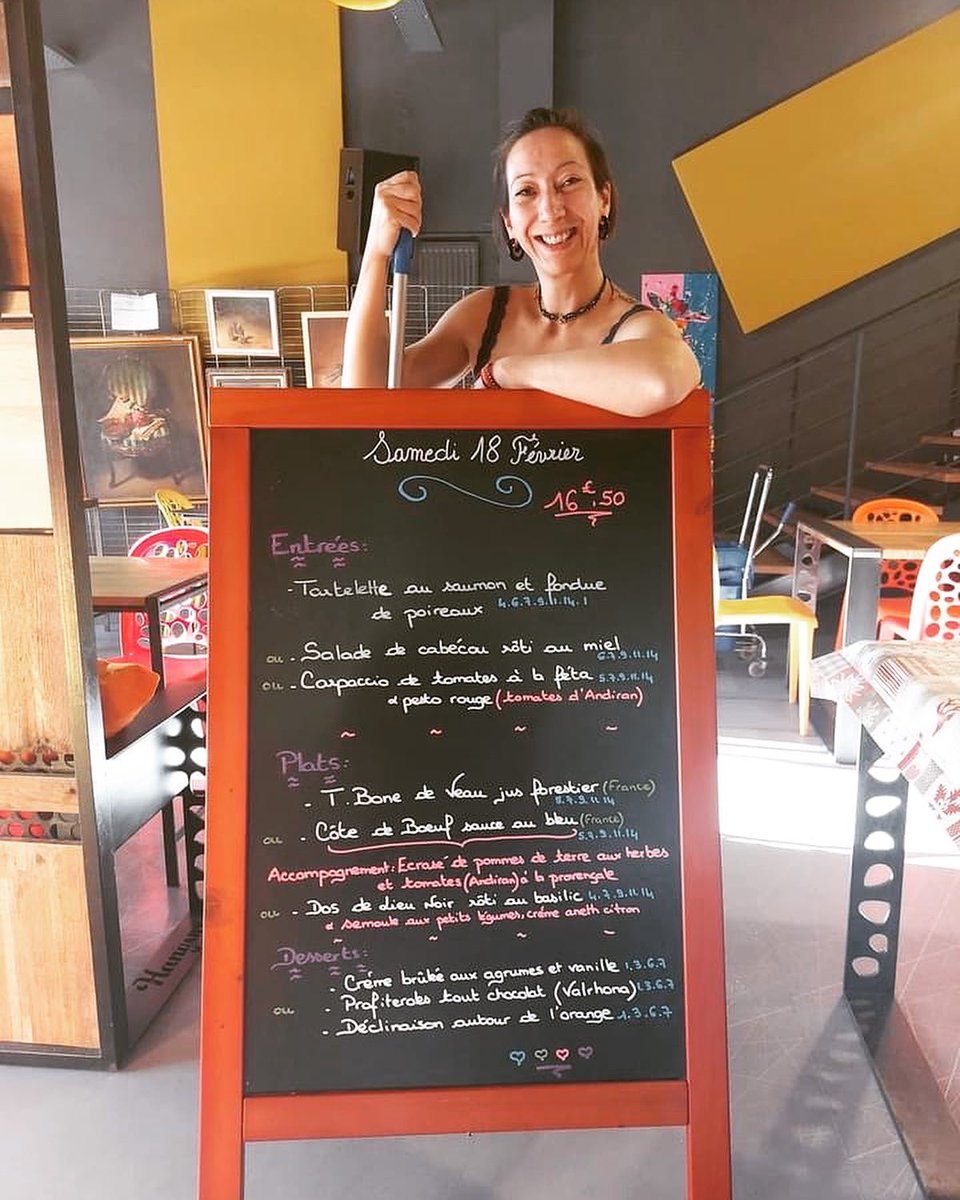 Samedi 18 Février
16€,50
Entrées:
- Tartelette au saumon et fondue
de poireaux 4.6.7.9.11.14.1
ou - Salade de cabécou rôti au miel
6.7.9.11.14
ou - Carpaccio de tomates à la féta 5.7.9.11.14
& pesto rouge (tomates d'Andiran)
~ ~ ~ ~
Plats:
- T. Bone de Veau jus forestier (France)
5.7.9.11.14
ou - Côte de Boeuf sauce au bleu (France)
5.7.9.11.14
Accompagnement: Ecrasé de pommes de terre aux herbes
et tomates (Andiran) à la provençale
ou - Dos de Lieu Noir rôti au basilic 4.7.9.11.14
& semoule aux petits légumes, crème aneth citron
~ ~ ~ ~
Desserts:
- Crème brûlée aux agrumes et vanille 1.3.6.7
ou - Profiteroles tout chocolat (Valrhona) 1.3.6.7
- Déclinaison autour de l'orange 1.3.6.7